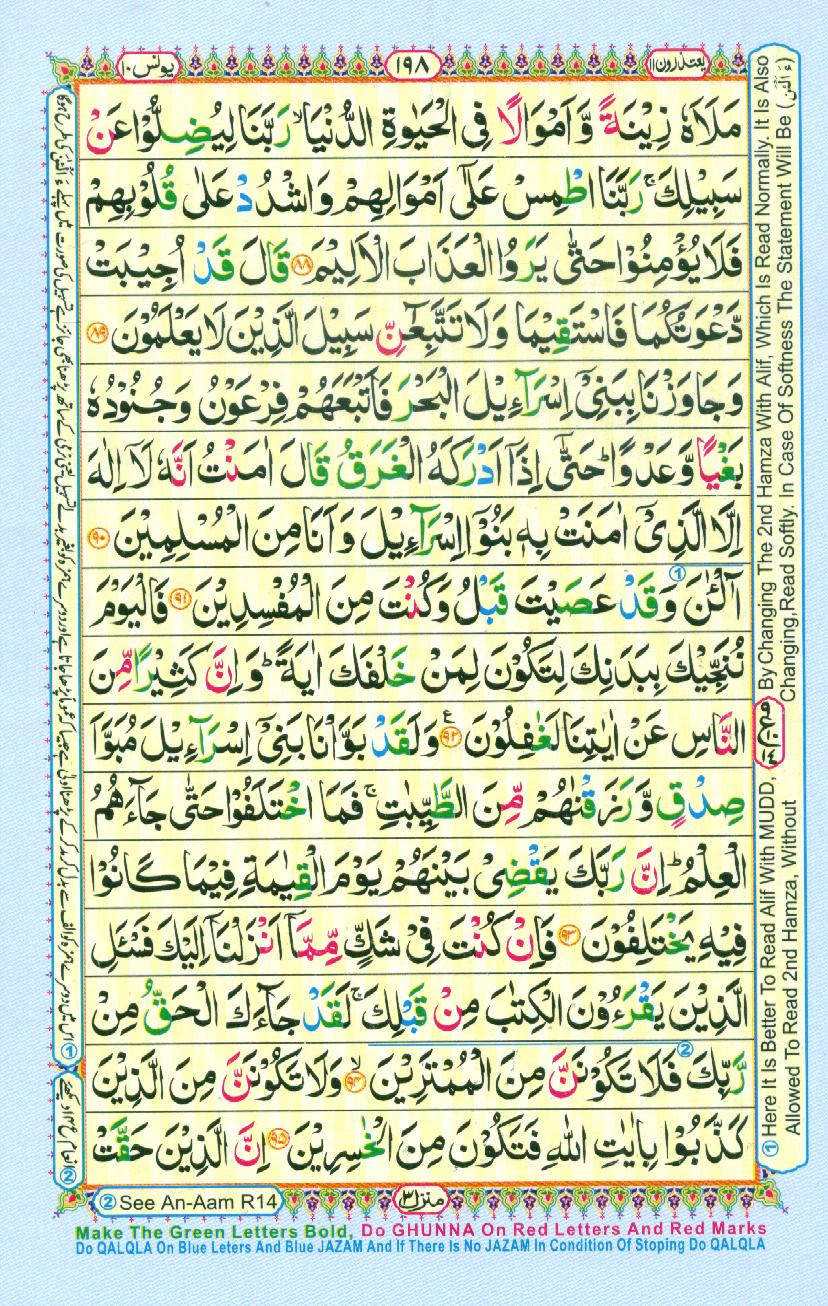 یعتذرون۱۱
۱۹۸
یونس۱۰
مَلَاَهٗ زِیْنَةً وَّاَمْوَالًا فِی الْحَیٰوةِ الدُّنْیَا ۙ رَبَّنَا لِیُضِلُّوْا عَنْ
سَبِیْلِكَ ۚ رَبَّنَا اطْمِسْ عَلٰۤی اَمْوَالِهِمْ وَاشْدُدْ عَلٰی قُلُوْبِهِمْ
فَلَا یُؤْمِنُوْا حَتّٰی یَرَوُا الْعَذَابَ الْاَلِیْمَ ۸۸ قَالَ قَدْ اُجِیْبَتْ
دَّعْوَتُكُمَا فَاسْتَقِیْمَا وَلَا تَتَّبِعٰٓنِّ سَبِیْلَ الَّذِیْنَ لَا یَعْلَمُوْنَ ۸۹
وَجَاوَزْنَا بِبَنِیْۤ اِسْرَآءِیْلَ الْبَحْرَ فَاَتْبَعَهُمْ فِرْعَوْنُ وَجُنُوْدُهٗ
بَغْیًا وَّعَدْوًا ؕ حَتّٰۤی اِذَاۤ اَدْرَكَهُ الْغَرَقُ قَالَ اٰمَنْتُ اَنَّهٗ لَاۤ اِلٰهَ
اِلَّا الَّذِیْۤ اٰمَنَتْ بِهٖ بَنُوْۤا اِسْرَآءِیْلَ وَاَنَا مِنَ الْمُسْلِمِیْنَ ۹۰
① آٰلْـٰٔنَ وَقَدْ عَصَیْتَ قَبْلُ وَكُنْتَ مِنَ الْمُفْسِدِیْنَ ۹۱ فَالْیَوْمَ
نُنَجِّیْكَ بِبَدَنِكَ لِتَكُوْنَ لِمَنْ خَلْفَكَ اٰیَةً ؕ وَاِنَّ كَثِیْرًا مِّنَ
النَّاسِ عَنْ اٰیٰتِنَا لَغٰفِلُوْنَ ۹۲ ع وَلَقَدْ بَوَّاْنَا بَنِیْۤ اِسْرَآءِیْلَ مُبَوَّاَ
صِدْقٍ وَّرَزَقْنٰهُمْ مِّنَ الطَّیِّبٰتِ ۚ فَمَا اخْتَلَفُوْا حَتّٰی جَآءَهُمُ
الْعِلْمُ ؕ اِنَّ رَبَّكَ یَقْضِیْ بَیْنَهُمْ یَوْمَ الْقِیٰمَةِ فِیْمَا كَانُوْا
فِیْهِ یَخْتَلِفُوْنَ ۹۳ فَاِنْ كُنْتَ فِیْ شَكٍّ مِّمَّاۤ اَنْزَلْنَاۤ اِلَیْكَ فَسْـَٔلِ
الَّذِیْنَ یَقْرَءُوْنَ الْكِتٰبَ مِنْ قَبْلِكَ ۚ لَقَدْ جَآءَكَ الْحَقُّ مِنْ
② رَّبِّكَ فَلَا تَكُوْنَنَّ مِنَ الْمُمْتَرِیْنَ ۙ ۹۴ وَلَا تَكُوْنَنَّ مِنَ الَّذِیْنَ
كَذَّبُوْا بِاٰیٰتِ اللّٰهِ فَتَكُوْنَ مِنَ الْخٰسِرِیْنَ ۹۵ اِنَّ الَّذِیْنَ حَقَّتْ
منزل۳
② See An-Aam R14
① Here It Is Better To Read Alif With MUDD, By Changing The 2nd Hamza With Alif, Which Is Read Normally. It Is Also
Allowed To Read 2nd Hamza, Without Changing,Read Softly. In Case Of Softness The Statement Will Be (ءَ اَلْئٰنَ)
Make The Green Letters Bold, Do GHUNNA On Red Letters And Red Marks
Do QALQLA On Blue Leters And Blue JAZAM And If There Is No JAZAM In Condition Of Stoping Do QALQLA